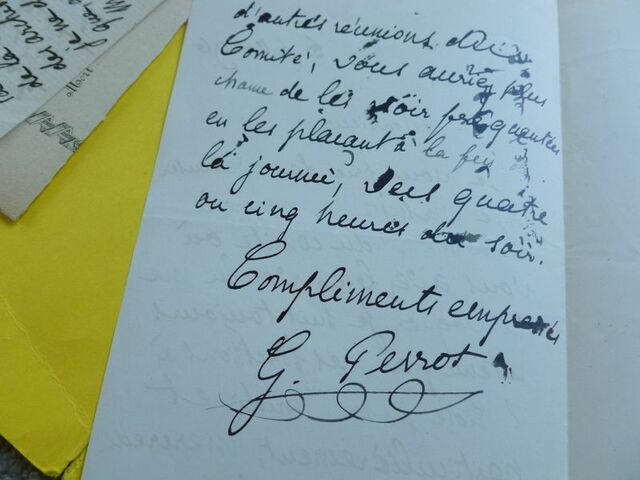 d'autres réunions du
Comité, vous auriez plus
chance de les voir fréquenter
en les plaçant à la fin de
la journée, vers quatre
ou cinq heures du soir.
Compliments empressés
G. Perrot
de la
des archi
je ne d